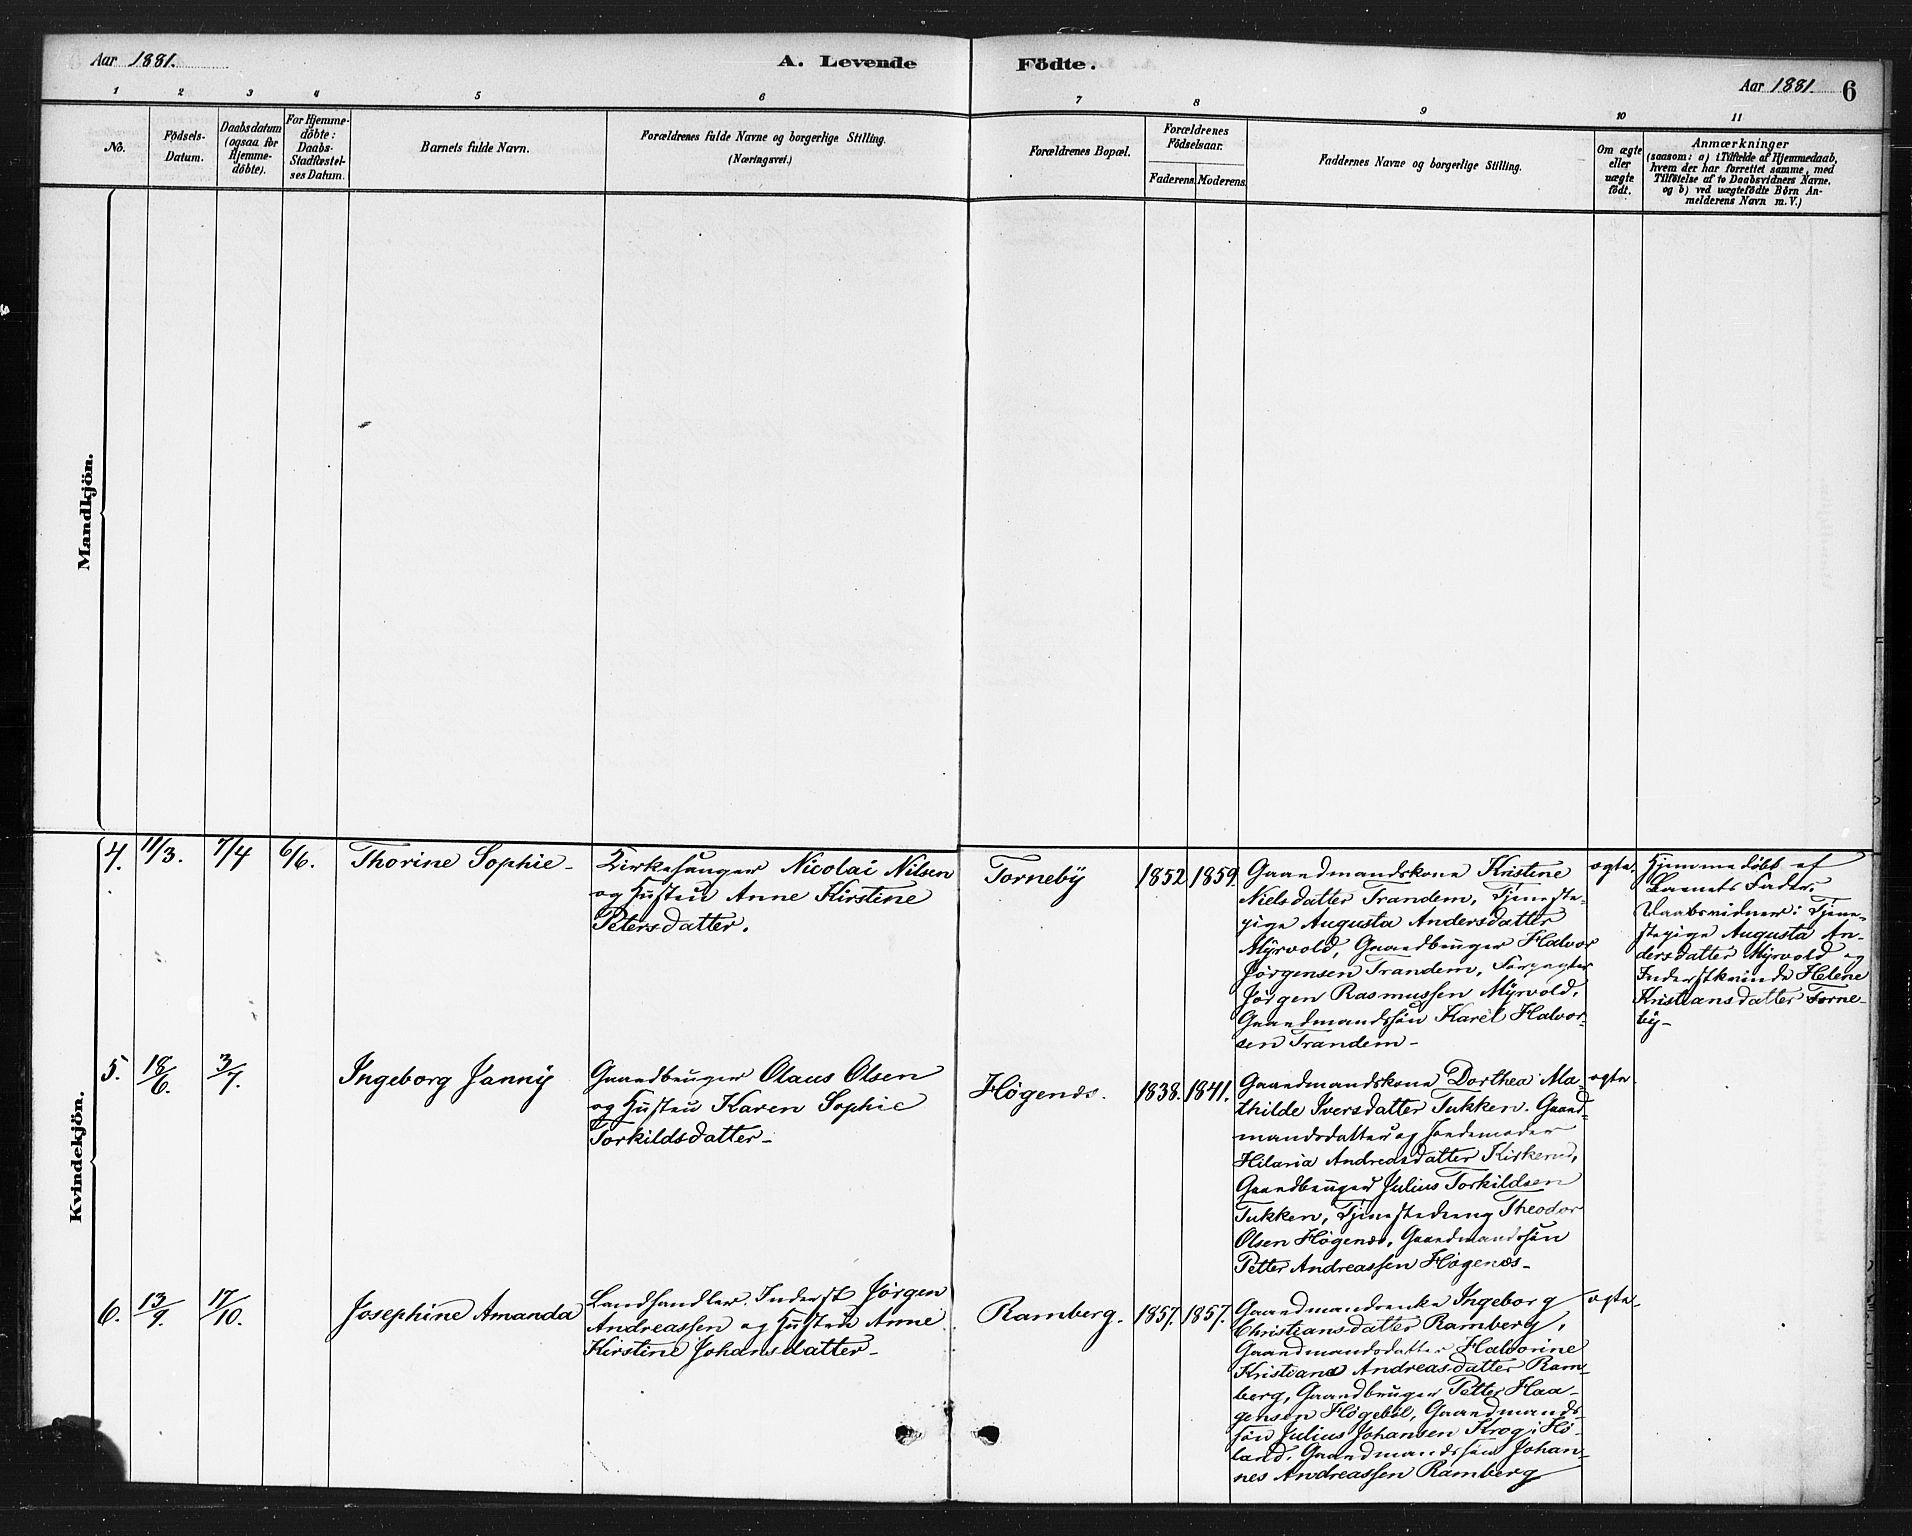 Aar 1881.
A. Levende Födte.
Aar 1881. 6
1 2 3 4 5 6 7 8 9 10 11
No.
Födsels-
Datum.
Daabsdatum
(ogsaa for
Hjemme-
döbte).
For Hjemme-
döbte:
Daabs-
Stadfæstel-
ses Datum.
Barnets fulde Navn.
Forældrenes fulde Navne og borgerlige Stilling.
(Næringsvei.)
Forældrenes Bopæl.
Forældrenes
Födselsaar.
Faderens. Moderens.
Faddernes Navne og borgerlige Stilling.
Om ægte
eller
uægte
födt.
Anmærkninger
(saasom: a) i Tilfælde af Hjemmedaab,
hvem der har forrettet samme, med
Tilföielse af to Daabsvidners Navne,
og b) ved uægtefödte Börn An-
melderens Navn m. V.)
Mandkjön.
Kvindekjön.
4. 11/3. 7/4 6/6. Thorine Sophie-
Kirkesanger Nicolai Nilsen
og Hustru Anne Kirstine
Petersdatter.
Torneby
1852 1859.
Gaardmandskone Kristine
Nielsdatter Trandem, Tjeneste-
pige Augusta Andersdatter
Myrvold, Gaardbruger Halvor
Jørgensen Trandem, Forpagter
Jørgen Rasmussen Myrvold,
Gaardmandssøn Karel Halvor-
sen Trandem-
ægte.
Hjemmedøbt af
Barnets Fader.
Daabsvidner: Tjene-
stepige Augusta An-
dersdatter Myrvold og
Inderstkvinde Helene
Kristiansdatter Torne-
by-
5. 18/6. 3/7. Ingeborg Janny
Gaardbruger Olaus Olsen
og Hustru Karen Sophie
Torkildsdatter-
Høgenæs.
1838. 1841.
Gaardmandskone Dorthea Ma-
thilde Iversdatter Tukken. Gaard-
mandsdatter og Jordemoder
Hilaria Andreasdatter Kirkerud,
Gaardbruger Julius Torkildsen
Tukken, Tjenestedreng Theodor
Olsen Høgenæs, Gaardmandssøn
Petter Andreassen Høgenæs-
ægte
6. 13/9. 17/10. Josephine Amanda
Landhandler. Inderst Jørgen
Andreassen og Hustru Anne
Kirstine Johansdatter-
Ramberg.
1857. 1857.
Gaardmandsenke Ingeborg
Christiansdatter Ramberg,
Gaardmandsdatter Halvorine
Kristiane Andreasdatter Ram-
berg, Gaardbruger Petter Haa-
gensen Høgebøl, Gaardmands-
søn Julius Johansen Krog i Hø-
land, Gaardmandssøn Johan-
nes Andreassen Ramberg
ægte-